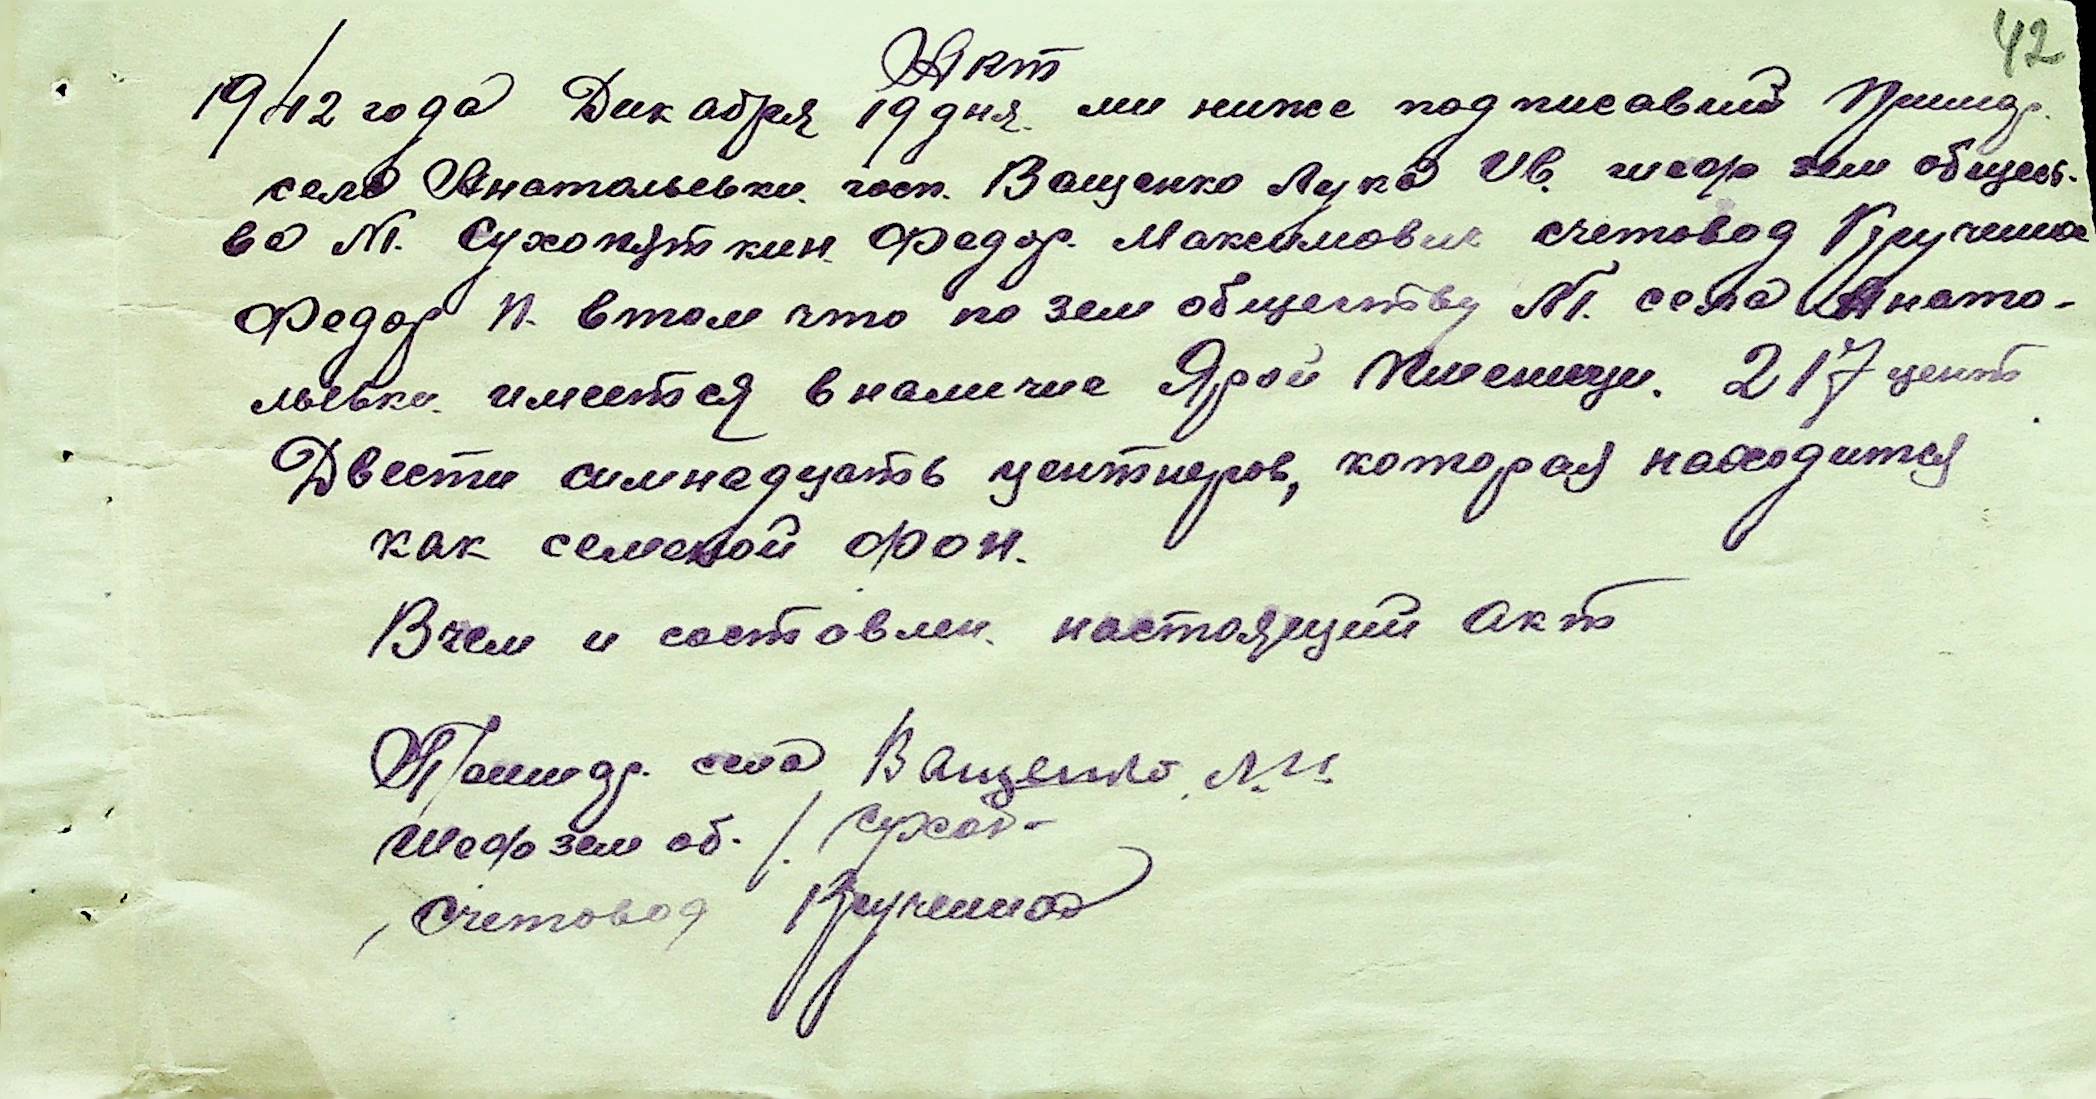 42
Акт
1942 года Дикабря 19 дня. ми ниже подписавший Примар.
села Анатольевки. госп. Ващенко Лука Ив. шеф зем общест-
во №1. Сухопяткин Федор. Максимович счетовод Кручина
Федор П. втом что по зем обществу №1. села Анато-
льевки. имеется вналичие Ярой Пшеници. 217 цент
Двести симнадцать центнеров, которая находится
как семеной фон.
Вчем и составлен. настоящий акт
Примар. села Ващенко Л.И.
Шеф зем об. /. Сухоп-
Счетовод Кручина